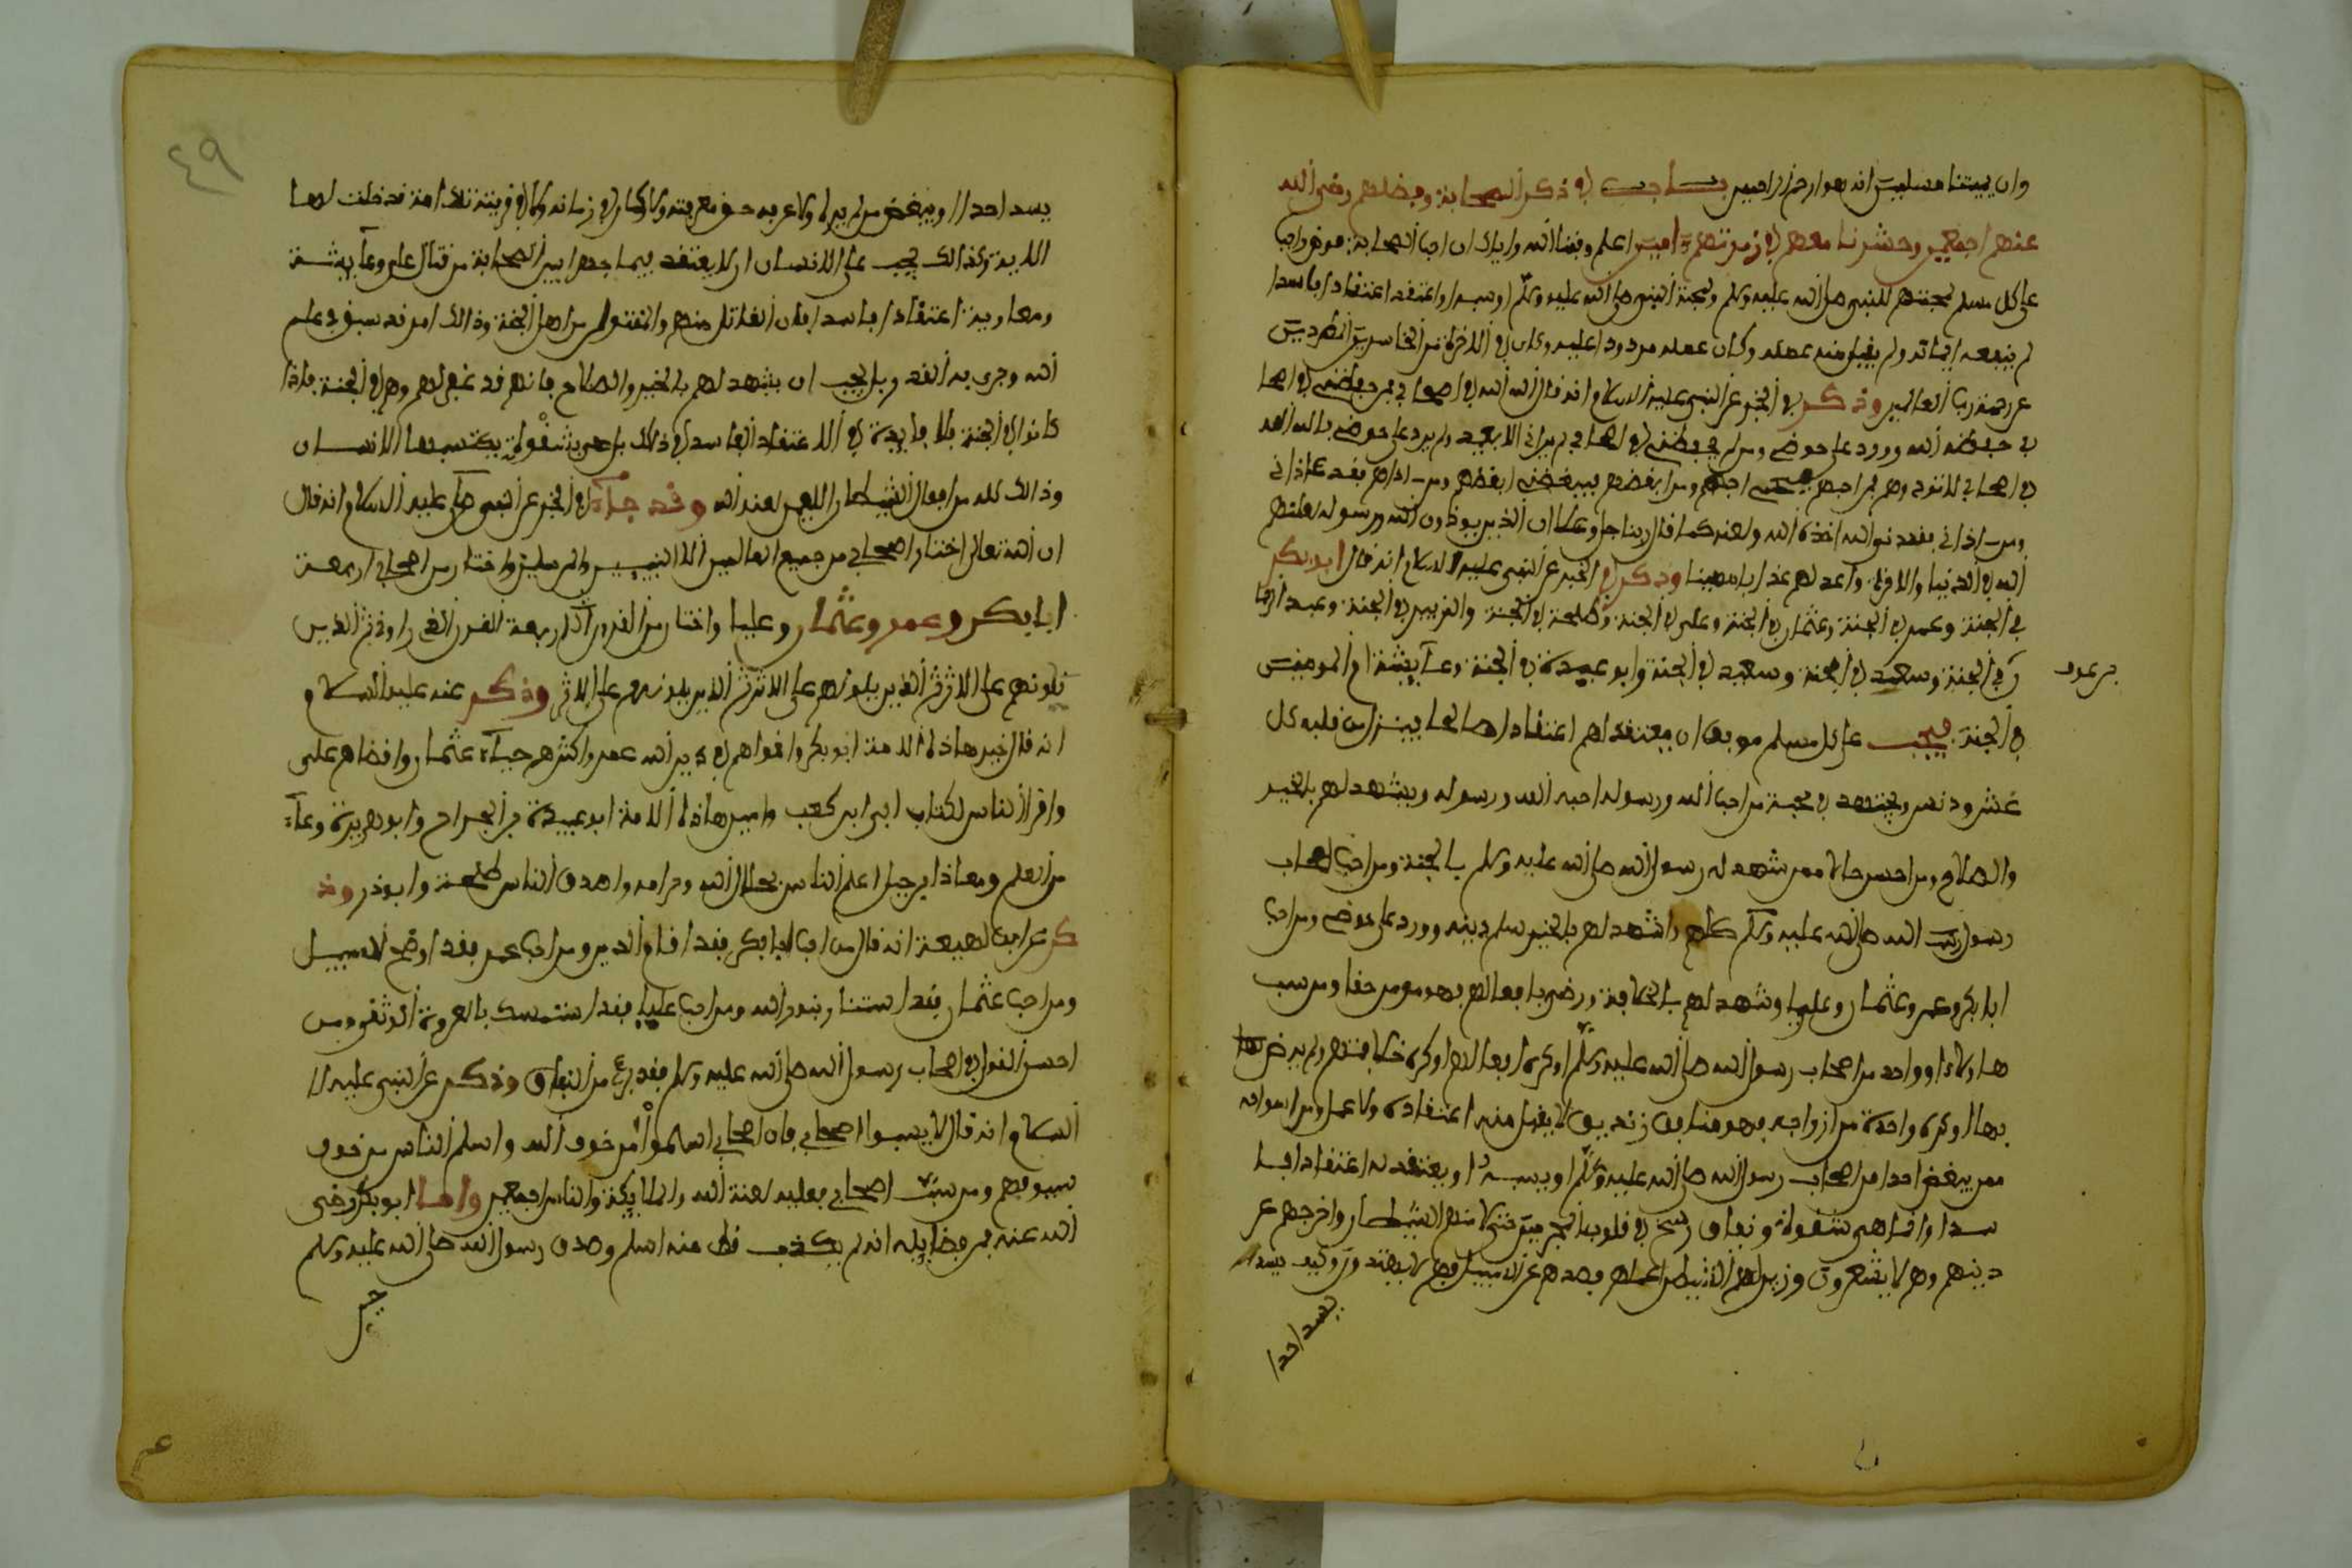 وان يميتنا مسلمين انه هو ارحم الراحمين باب في ذكر الصحابة وفضلهم رضي الله
عنهم اجمعين وحشرنا معهم في زمرتهم امين اعلم وفقنا الله واياك ان احباب الصحابة فرض واجب
على كل مسلم لمحبتهم للنبي صلى الله عليه وسلم ولمحبة النبي صلى الله عليه وسلم او سبهم او اعتقد اعتقادا فاسدا
لم ينفعه ايمانه ولم يقبل منه عمله وكان عمله مردودا عليه وكان في الاخرة من الخاسرين المطرودين
عن رحمة رب العالمين وذكر في الخبر عن النبي عليه السلام انه قال الله الله في اصحابي فمن حفظني في اصحا
بي حفظه الله وورد على حوضي ومن لم يحفظني في اصحابي لم يراني الا بعيد ولم يرد على حوضي بالله الله
في اصحابي لا تؤذوهم فمن احبهم احبهم ومن ابغضهم فببغضي ابغضهم ومن اذاهم فقد اذاني
ومن اذاني فقد اذى الله اخذه الله ولعنه كما قال ربنا جل وعلا ان الذين يوذون الله ورسوله لعنهم
الله في الدنيا والاخرة واعد لهم عذابا مهينا وذكر في الخبر عن النبي عليه السلام انه قال ابو بكر
في الجنة وعمر في الجنة وعثمان في الجنة وعلي في الجنة وطلحة في الجنة والزبير في الجنة وعبد الرحما
ن في الجنة وسعد في الجنة وسعيد في الجنة وابو عبيدة في الجنة وعائشة ام المومنين
بن عوف
في الجنة فيجب على كل مسلم موفق ان يعتقد لهم اعتقادا صالحا ينزع من قلبه كل
غش ودنس ويجتهد في محبة من احب الله ورسوله احبه الله ورسوله ويشهد لهم بالخير
والصلاح ومن احسن حالا ممن شهد له رسول الله صلى الله عليه وسلم بالجنة ومن احب اصحاب
رسول الله صلى الله عليه وسلم كلهم واشهد لهم بالخير سلم دينه وورد على حوضي ومن احب
ابا بكر وعمر وعثمان وعليا وشهد لهم بالخلافة ورضي بافعالهم فهو مومن حقا ومن سب
هاولاء او واحد من اصحاب رسول الله صلى الله عليه وسلم او كره افعالهم او كره خلافتهم ولم يرض
بها او كره واحدة من ازواجه فهو منافق زنديق لا يقبل منه اعتقاده ولا عمل ومن اسوا له
ممن يبغض احدا من اصحاب رسول الله صلى الله عليه وسلم او يسبه او يعتقد له اعتقادا فا
سدا وانما هي شقوة ونفاق رسخ في قلوب المجرمين تمكن منهم الشيطان واخرجهم عن
دينهم وهم لا يشعرون وزين لهم الشيطان اعمالهم وصدهم عن السبيل فهم لا يهتدون وكيف يسد
يسد احدا
٤٩
يسد احدا او يبغض من لم يره ولا عرفه حق معرفته ولا كان في زمانه ولا في قرينته تلك امة قد خلت لها
الاية وكذالك يجب على الانسان ان لا يعتقد فيما جرا بين الصحابة من قتال علي وعائشة
ومعاوية اعتقادا فاسدا فان القاتل منهم والمقتول من اهل الجنة وذالك امر قد سبق في علم
الله وجرى به القدر بل يجب ان يشهد لهم بالخير والصلاح فانهم قد غفر لهم وهم في الجنة فاذا
كانوا في الجنة فلا فايدة في الاعتقاد الفاسد في ذلك بل هي شقوة يكتسبها الانسان
وذالك كله من افعال الشيطان اللعين لعنه الله وقد جاء في الخبر عن النبي صلى عليه السلام انه قال
ان الله تعالى اختار اصحابي من جميع العالمين الا النبيين والمرسلين واختار من اصحابي اربعة
ابا بكر وعمر وعثمان وعليا واختار من القرون الاربعة القرن الذي اوفى ثم الذين
يلونهم على الاثر ثم الذين يلونهم على الاثر ثم الذين يلونهم على الاثر وذكر عنه عليه السلام
انه قال خير هاذه الامة ابو بكر واقواهم في دين الله عمر واكثرهم حياء عثمان واقضاهم علي
واقرا الناس لكتاب ابي ابن كعب وامين هاذه الامة ابو عبيدة بن الجراح وابو هريرة وعاء
من العلم ومعاذ ابن جبل اعلم الناس بحلال الله وحرامه واصدق الناس طلحة وابوذر وذ
كر عن ابن لهيعة انه قال من احب ابا بكر فقد اقام الدين ومن احب عمر فقد اوضح السبيل
ومن احب عثمان فقد استنار بنور الله ومن احب عليا فقد استمسك بالعروة الوثقى ومن
احسن القول في اصحاب رسول الله صلى الله عليه وسلم فقد برئ من النفاق وذكر عن النبي عليه ا
السلام انه قال لا يسبوا اصحابي فان اصحابي اسلموا من خوف الله واسلم الناس من خوف
سيوفهم ومن سب اصحابي فعليه لعنة الله والملايكة والناس اجمعين واما ابو بكر رضي
الله عنه فمن فضايله انه لم يكذب قط منه اسلم وصدق رسول الله صلى الله عليه وسلم